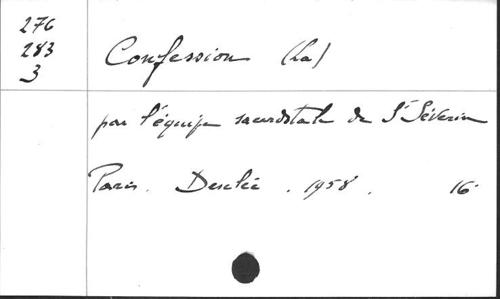 276
283
3
Confession (La)
par l'équipe sacerdotale de St Séverin
Paris. Desclée. 1958. 16°